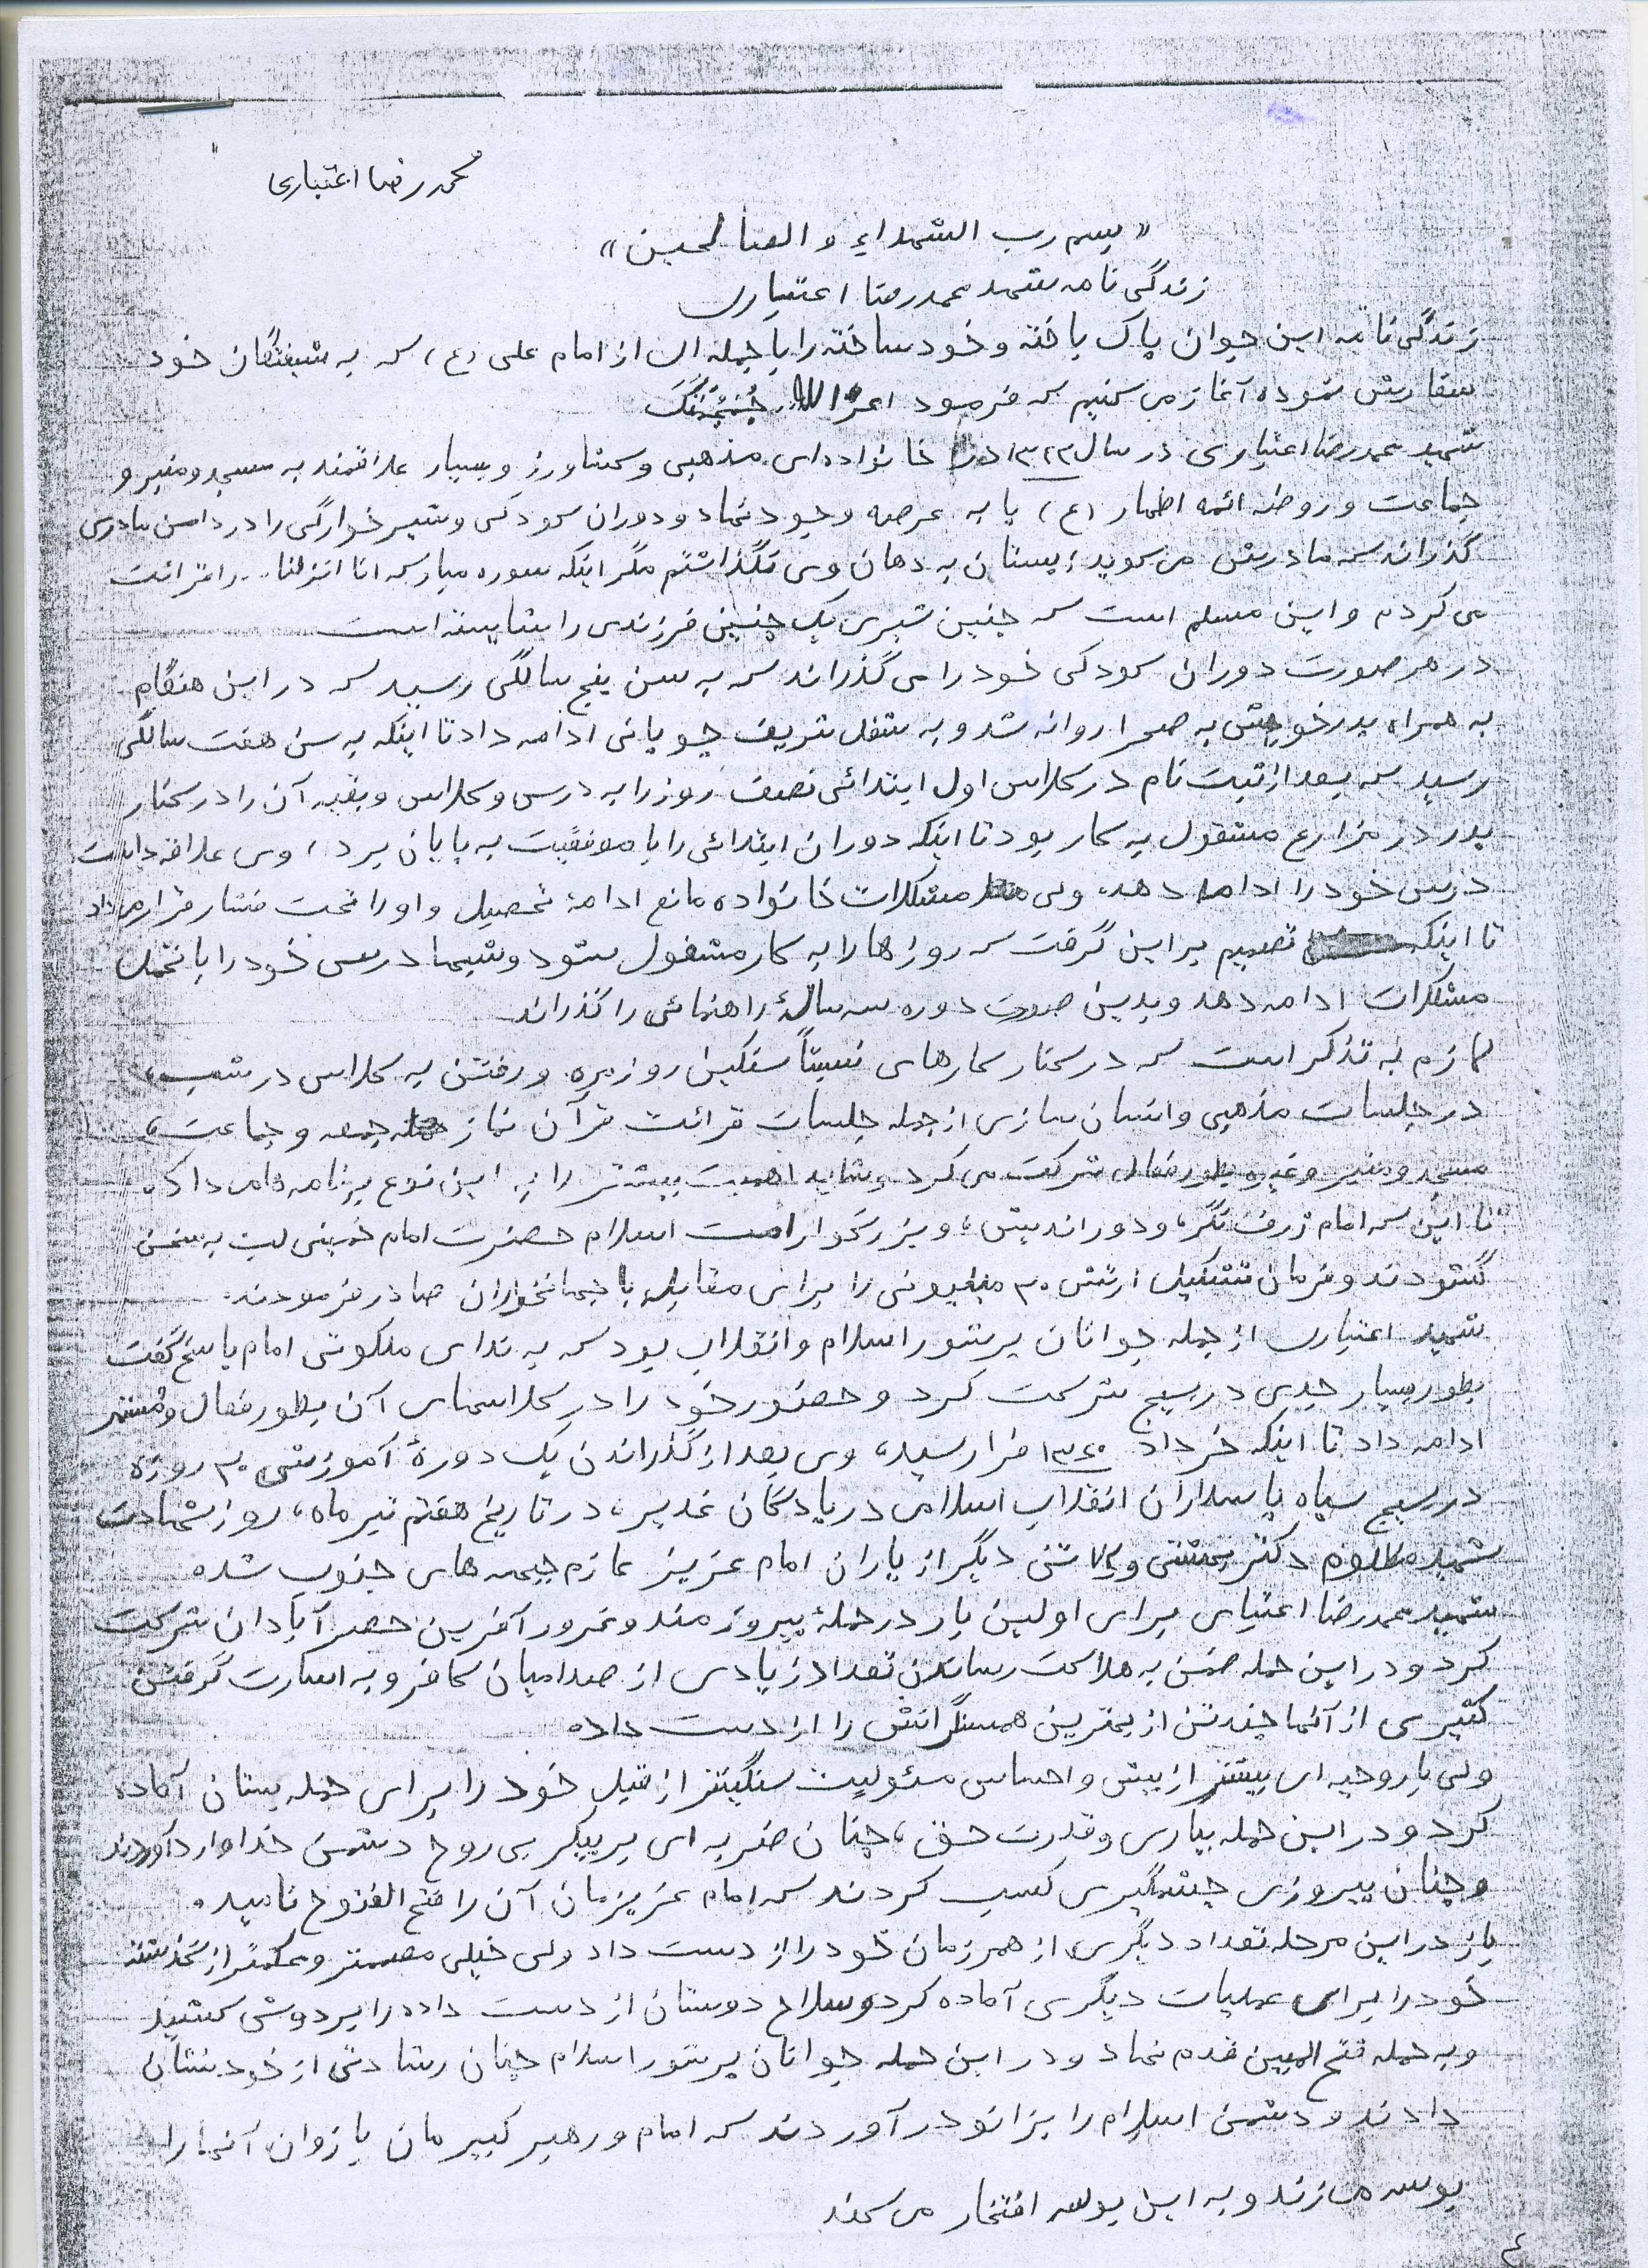 محمدرضا اعتباری
«بسم رب الشهداء و الصالحین»
زندگی نامه شهید محمدرضا اعتباری
زندگی نامه این جوان پاک باخته و خودساخته را با جمله ای از امام علی (ع) که به شیفتگان خود
سفارش نموده آغاز می کنیم که فرمود اعرالله جمجمتک
شهید محمدرضا اعتباری در سال ۱۳۴۳ در خانواده ای مذهبی و کشاورز و بسیار علاقمند به مسجد و منبر و
جماعت و روضه ائمه اطهار (ع) پا به عرصه وجود نهاد و دوران کودکی و شیرخوارگی را در دامن مادری
گذراند که مادرش می گوید: پستان به دهان وی نگذاشتم مگر اینکه سوره مبارکه انا انزلنا... را قرائت
می کردم و این مسلم است که چنین شیری یک چنین فرزندی را شایسته است
در هر صورت دوران کودکی خود را می گذراند که به سن پنج سالگی رسید که در این هنگام
به همراه پدر خویش به صحرا روانه شد و به شغل شریف چوپانی ادامه داد تا اینکه به سن هفت سالگی
رسید که بعد از ثبت نام در کلاس اول ابتدائی نصف روز را به درس و کلاس و بقیه آن را در کنار
پدر در مزارع مشغول به کار بود تا اینکه دوران ابتدائی را با موفقیت به پایان برد، وی علاقه داشت
درس خود را ادامه دهد، ولی مشکلات خانواده مانع ادامهٔ تحصیل و او را تحت فشار قرار می داد
تا اینکه تصمیم بر این گرفت که روزها را به کار مشغول شود و شبها درس خود را با تحمل
مشکلات ادامه دهد و بدین صورت دوره سه سالهٔ راهنمائی را گذراند
لازم به تذکر است که در کنار کارهای نسبتاً سنگین روزمره و رفتن به کلاس در شب،
در جلسات مذهبی و انسان سازی از جمله جلسات قرائت قرآن نماز جمعه و جماعت،
مسجد و منبر و غیره بطور فعال شرکت می کرد و شاید اهمیت بیشتر را به این نوع برنامه ها می داد که
تا این که امام ژرف نگر، و دوراندیش، و بزرگوار امت اسلام حضرت امام خمینی لب به سخن
گشودند و فرمان تشکیل ارتش ۲۰ میلیونی را برای مقابله با جهانخواران صادر فرمودند.
شهید اعتباری از جمله جوانان پرشور اسلام و انقلاب بود که به ندای ملکوتی امام پاسخ گفت
بطور بسیار جدی در بسیج شرکت کرد و حضور خود را در کلاسهای آن بطور فعال و مستمر
ادامه داد تا اینکه خرداد ۱۳۶۰ فرا رسید، وی بعد از گذراندن یک دورهٔ آموزشی ۲۰ روزه
در بسیج سپاه پاسداران انقلاب اسلامی در پادگان غدیر، در تاریخ هفتم تیر ماه، روز شهادت
شهید مظلوم دکتر بهشتی و ۷۲ تنی دیگر از یاران امام عزیز عازم جبهه های جنوب شده
شهید محمدرضا اعتباری برای اولین بار در حملهٔ پیروزمند و غرور آفرین حصر آبادان شرکت
کرد و در این حمله ضمن به هلاکت رساندن تعداد زیادی از صدامیان کافر و به اسارت گرفتن
کثیری از آنها چند تن از بهترین همسنگرانش را از دست داده
ولی با روحیه ای بیشتر از پیش و احساس مسئولیت سنگینتر از قبل خود را برای حمله بستان آماده
کرد و در این حمله بیاری و قدرت حق، چنان ضربه ای بر پیکر بی روح دشمن خدا وارد آوردند
و چنان پیروزی چشمگیری کسب کردند که امام عزیزمان آن را فتح الفتوح نامید.
باز در این مرحله تعداد دیگری از همرزمان خود را از دست داد ولی خیلی مصمم تر و محکمتر از گذشته
خود را برای عملیات دیگری آماده کرد و سلاح دوستان از دست داده را بر دوش کشید
و به حمله فتح المبین قدم نهاد و در این حمله جوانان پرشور اسلام چنان رشادتی از خود نشان
دادند و دشمن اسلام را بزانو در آوردند که امام و رهبر کبیرمان بازوان آنها را
بوسه می زند و به این بوسه افتخار می کند